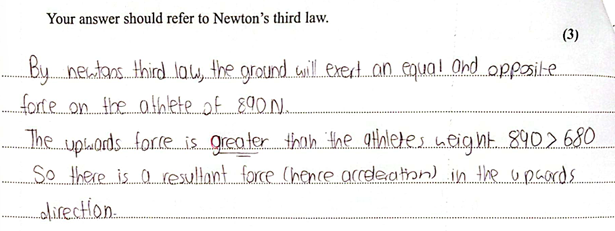 Your answer should refer to Newton's third law.
(3)
By newtons third law, the ground will exert an equal and opposite
force on the athlete of 890N.
The upwards force is greater than the athletes weight 890 > 680
So there is a resultant force (hence acceleration) in the upwards
direction.